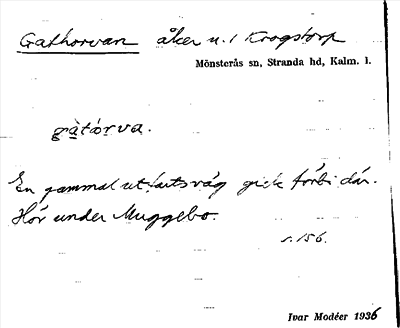 Gathorvan åker n. 1 Krogstorp
Mönsterås sn, Stranda hd, Kalm. l.
gàtórva.
En gammal utfartsväg gick förbi där.
Hör under Muggebo.
s. 156.
Ivar Modéer 1936